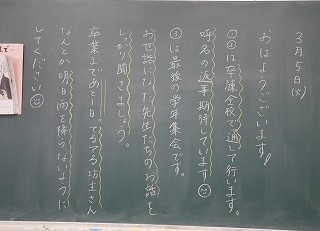 3月5日(火)
おはようございます!
①②は卒練全校で通して行います。
呼名の返事期待しています☺
③は最後の学年集会です。
お世話になった先生たちのお話を
しっかり聞きましょう。
卒業まであと1日。てるてる坊主さん
なんとか明日雨を降らないように
してください☺